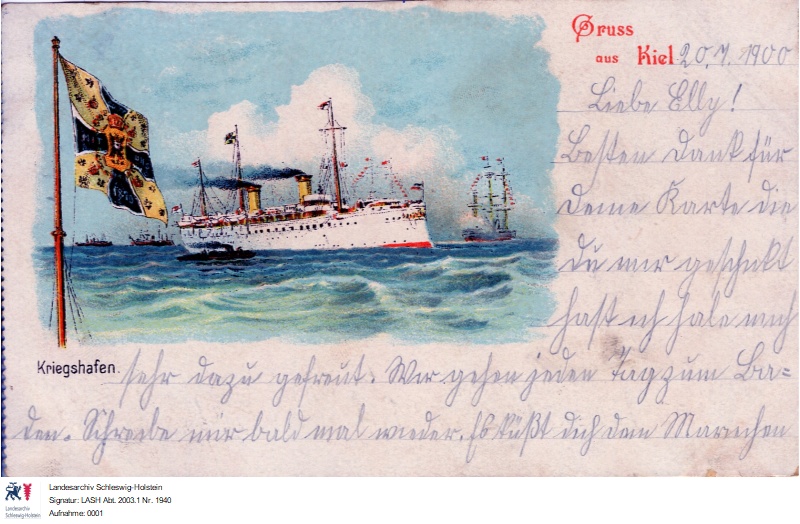 Gruss
aus Kiel 20.7.1900
Liebe Elly!
Besten Dank für
Deine Karte die
du mir geschikt
hast ich habe mich
Kriegshafen.
sehr dazu gefreut. Wir gehen jeden Tag zum Ba=
den. Schreibe mir bald mal wieder. Es küßt dich dein Mariechen
Landesarchiv Schleswig-Holstein
Signatur: LASH Abt. 2003.1 Nr. 1940
Aufnahme: 0001
Landesarchiv
Schleswig-Holstein